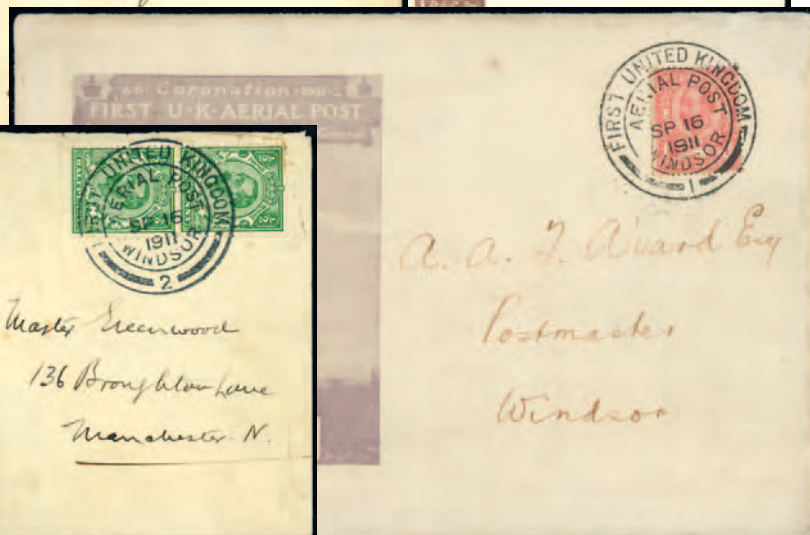 A.D. Coronation 1911
FIRST U·K·AERIAL POST
FIRST UNITED KINGDOM
AERIAL POST
SP 16
1911
WINDSOR
1
A. A. T. A'vard Esq
Postmaster
Windsor
FIRST UNITED KINGDOM
AERIAL POST
SP 16
1911
WINDSOR
2
Master Greenwood
136 Broughton Lane
Manchester. N.